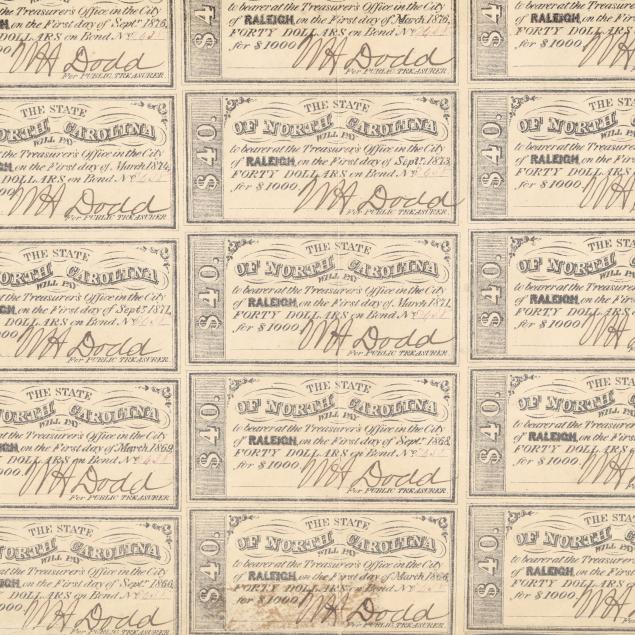 to bearer at the Treasurer's Office in the City
on the First day of Septr. 1876,
DOLLARS on Bond No
W H Dodd
For PUBLIC TREASURER.
to bearer at the Treasurer's Office in the City
of RALEIGH, on the First day of March, 1876,
FORTY DOLLARS on Bond No
for $1000. W H Dodd
For PUBLIC TREASURER.
to bearer at the Treasurer's
of RALEIGH, on the First
FORTY DOLLARS
for $1000.
THE STATE
NORTH CAROLINA
WILL PAY
at the Treasurer's Office in the City
on the First day of March, 1874,
DOLLARS on Bond No
W H Dodd
For PUBLIC TREASURER.
$40.
THE STATE
OF NORTH CAROLINA
WILL PAY
to bearer at the Treasurer's Office in the City
of RALEIGH, on the First day of Septr. 1873,
FORTY DOLLARS on Bond No
for $1000. W H Dodd
For PUBLIC TREASURER.
$40.
THE STATE
OF NORTH
WILL PAY
to bearer at the Treasurer's
of RALEIGH, on the First
FORTY DOLLARS
for $1000. W H
THE STATE
NORTH CAROLINA
WILL PAY
at the Treasurer's Office in the City
on the First day of Septr. 1871,
DOLLARS on Bond No
W H Dodd
For PUBLIC TREASURER.
$40.
THE STATE
OF NORTH CAROLINA
WILL PAY
to bearer at the Treasurer's Office in the City
of RALEIGH, on the First day of March, 1871,
FORTY DOLLARS on Bond No
for $1000. W H Dodd
For PUBLIC TREASURER.
$40.
THE STATE
OF NORTH
WILL PAY
to bearer at the Treasurer's
of RALEIGH, on the First
FORTY DOLLARS
for $1000. W H
THE STATE
NORTH CAROLINA
WILL PAY
at the Treasurer's Office in the City
on the First day of March, 1869,
DOLLARS on Bond No
W H Dodd
For PUBLIC TREASURER.
$40.
THE STATE
OF NORTH CAROLINA
WILL PAY
to bearer at the Treasurer's Office in the City
of RALEIGH, on the First day of Septr. 1868,
FORTY DOLLARS on Bond No
for $1000. W H Dodd
For PUBLIC TREASURER.
$40.
THE STATE
OF NORTH
WILL PAY
to bearer at the Treasurer's
of RALEIGH, on the First
FORTY DOLLARS
for $1000. W H
THE STATE
NORTH CAROLINA
WILL PAY
at the Treasurer's Office in the City
on the First day of Septr. 1866,
DOLLARS on Bond No
W H Dodd
For PUBLIC TREASURER.
$40.
THE STATE
OF NORTH CAROLINA
WILL PAY
to bearer at the Treasurer's Office in the City
of RALEIGH, on the First day of March, 1866,
FORTY DOLLARS on Bond No
for $1000. W H Dodd
For PUBLIC TREASURER.
$40.
THE STATE
OF NORTH
WILL PAY
to bearer at the Treasurer's
of RALEIGH, on the First
FORTY DOLLARS
for $1000. W H